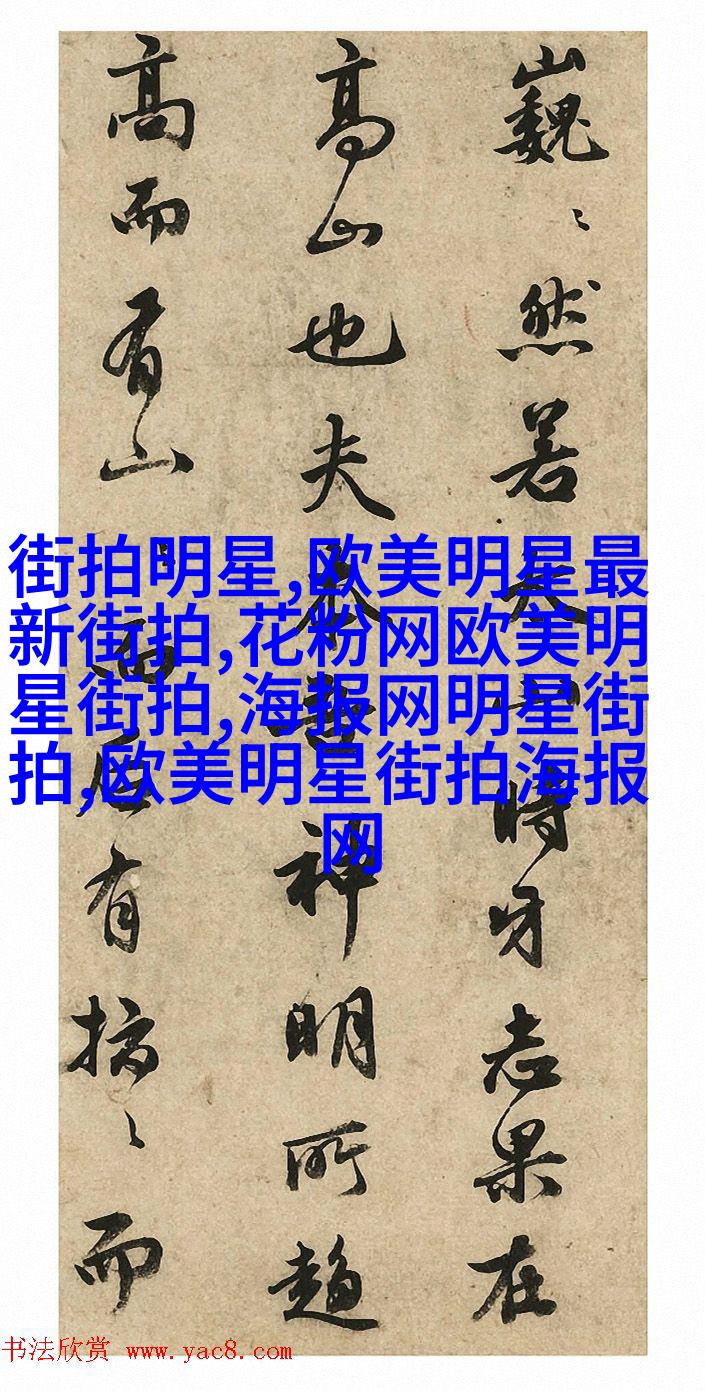 巍〻然若太山時牙志果在
高山也夫神明所趨
高而有山〻而后有〻而
街拍明星,欧美明星最
新街拍,花粉网欧美明
星街拍,海报网明星街
拍,欧美明星街拍海报
网
书法欣赏 www.yac8.com